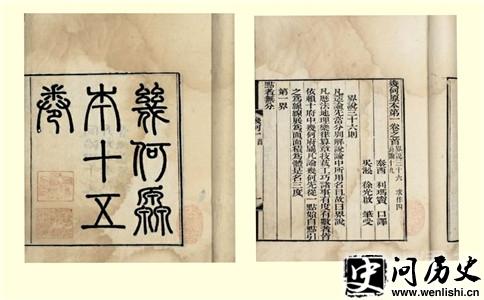 幾何原
本十五
卷
幾何原本第一卷之首 界說三十六 求作四 公論十九
泰西 利瑪竇 口譯
吳淞 徐光啟 筆受
界說三十六則
凡造論先當分別解說論中所用名目故曰界說
凡歷法地理樂律算章技藝工巧諸事有度有數者皆
依賴十府中幾何府屬凡論幾何先從一點始自點引
之為線線展為面面積為體是名三度
第一界
點者無分
史 问历史
www.wenlishi.cn